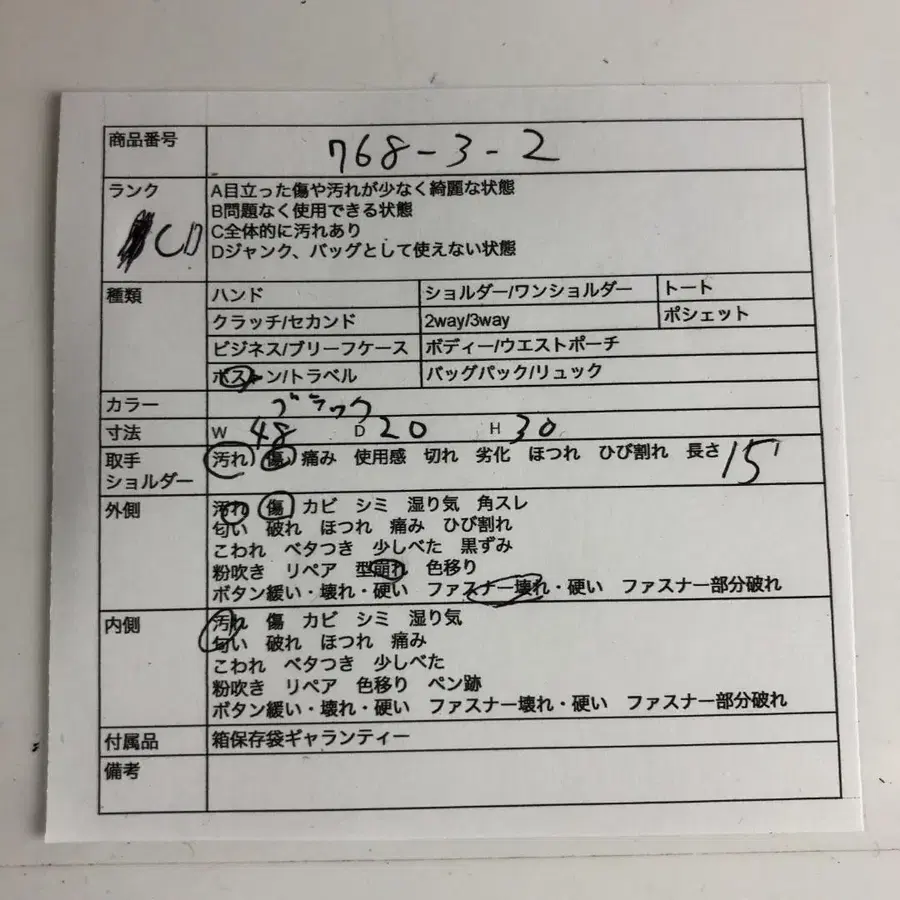 商品番号 768-3-2
ランク A目立った傷や汚れが少なく綺麗な状態
B問題なく使用できる状態
C全体的に汚れあり
CD Dジャンク、バッグとして使えない状態
種類 ハンド ショルダー/ワンショルダー トート
クラッチ/セカンド 2way/3way ポシェット
ビジネス/ブリーフケース ボディー/ウエストポーチ
ボストン/トラベル バッグパック/リュック
カラー ブラック
寸法 W 48 D 20 H 30
取手 汚れ 傷 痛み 使用感 切れ 劣化 ほつれ ひび割れ 長さ 15
ショルダー
外側 汚れ 傷 カビ シミ 湿り気 角スレ
匂い 破れ ほつれ 痛み ひび割れ
こわれ ベタつき 少しべた 黒ずみ
粉吹き リペア 型崩れ 色移り
ボタン緩い・壊れ・硬い ファスナー壊れ・硬い ファスナー部分破れ
内側 汚れ 傷 カビ シミ 湿り気
匂い 破れ ほつれ 痛み
こわれ ベタつき 少しべた
粉吹き リペア 色移り ペン跡
ボタン緩い・壊れ・硬い ファスナー壊れ・硬い ファスナー部分破れ
付属品 箱保存袋ギャランティー
備考